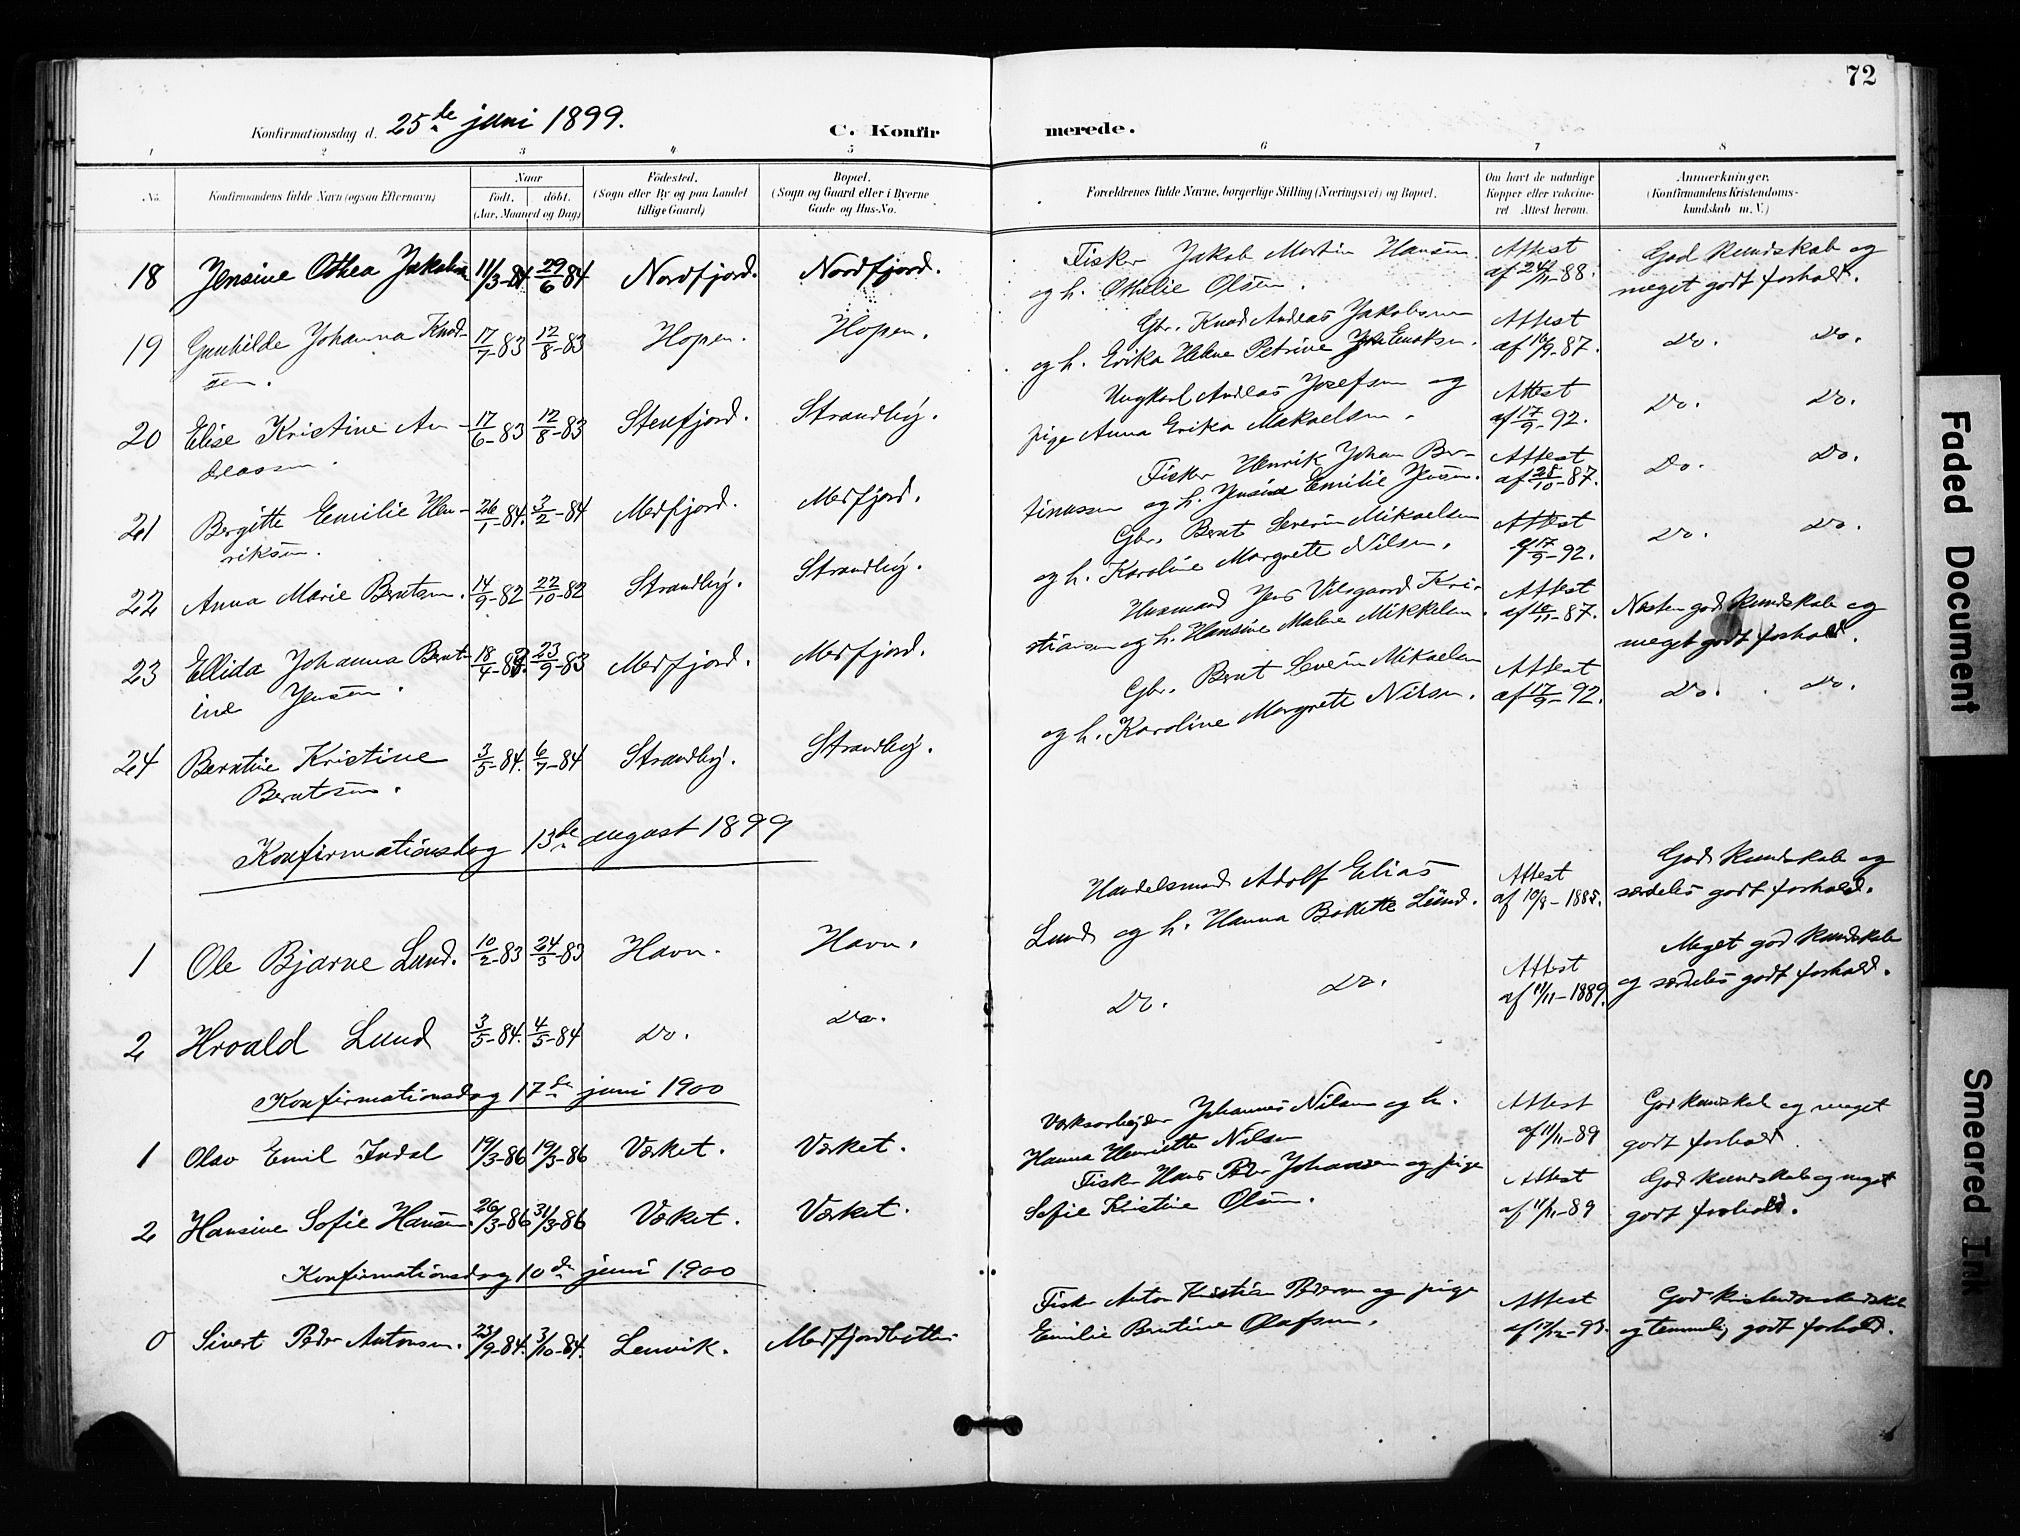 72
Konfirmationsdag d. 25de juni 1899.
C. Konfirmerede.
1 2 3 4 5 6 7 8
No.
Konfirmandens fulde Navn (ogsaa Efternavn)
Naar
født. døbt.
(Aar, Maaned og Dag)
Fødested.
(Sogn eller By og paa Landet
tillige Gaard)
Bopæl.
(Sogn og Gaard eller i Byerne
Gade og Hus-No.
Forældrenes fulde Navne, borgerlige Stilling (Næringsvei) og Bopæl.
Om havt de naturlige
Kopper eller vaccine-
ret Attest herom.
Anmerkninger.
(Konfirmandens Kristendoms-
kundskab m. V.)
18 Jensine Othea Jakobsen 11/3-84 29/6-84 Nordfjord. Nordfjord.
Fisker Jakob Martin Hansen
og h. Othelie Olsen.
Attest
af 24/11-88.
God kundskab og
meget godt forhold.
19 Gunhilde Johanna Knud-
sen. 17/7-83 12/8-83 Hopen. Hopen.
Gbr. Knud Andreas Jakobsen
og h. Erika Helene Petrine
Attest
af 16/9-87.
Do. Do.
20 Elise Kristine An-
dreassen. 17/6-83 12/8-83 Stenfjord. Strandby.
Ungkarl Andreas Josefsen og
pige Anna Erika Mikaelsen.
Attest
af 17/9-92.
Do. Do.
21 Bergitte Emilie Hen-
riksen. 26/1-84. 3/2-84 Medfjord. Medfjord.
Fisker Henrik Johan Ber-
tinussen og h. Jensine Emilie Jensen.
Attest
af 28/10-87.
Do. Do.
22 Anna Marie Berntsen. 14/9-82 22/10-82 Strandby. Strandby.
Gbr. Bernt Severin Mikaelsen
og h. Karoline Margrete Nilsen.
Attest
af 17/9-92.
Do. Do.
23 Ellida Johanna Bernt-
ine Jensen. 18/4-83. 23/9-83 Medfjord. Medfjord.
Husmand Jens Vilsgaard Kri-
stiansen og h. Hansine Malene Mikkelsen.
Attest
af 16/11-87.
Næsten god kundskab og
meget godt forhold.
24 Berntine Kristine
Berntsen. 3/5-84. 6/7-84 Strandby. Strandby.
Gbr. Bernt Severin Mikaelsen
og h. Karoline Margrette Nilsen.
Attest
af 17/9-92.
Do. Do.
Konfirmationsdag 13de august 1899
1 Ole Bjarne Lund. 10/2-83 24/3-83 Havn. Havn.
Handelsmand Adolf Elias
Lund og h. Hanna Bollette Lünd.
Attest
af 10/8-1885.
God kundskab og
særdeles godt forhold.
2 Hroald Lund 3/5-84. 4/5-84 Do. Do.
Do. Do.
Attest
af 11/11-1889.
Meget god kundskab
og særdeles godt forhold.
Konfirmationsdag 17de juni 1900
1 Olav Emil Indal 19/3-86 19/3-86 Værket. Værket.
Værksarbejder Johannes Nilsen og h.
Hanna Henriette Nilsen
Attest
af 11/11-89
God kundskab og meget
godt forhold.
2 Hansine Sofie Hansen. 26/3-86 31/3-86 Værket. Værket.
Fisker Hans Peder Johansen og pige
Sofie Kristine Olsen.
Attest
af 11/11-89
God kundskab og meget
godt forhold.
Konfirmationsdag 10de juni 1900
0 Sivert Peder Antonsen. 23/9-84. 3/10-84. Lenvik. Medfjordbotten
Fisker Anton Kristian Pedersen og pige
Emilie Berntine Olafsen.
Attest
af 17/12-93.
God kristendomskundskab
og temmelig godt forhold.
Faded Document
Smeared Ink